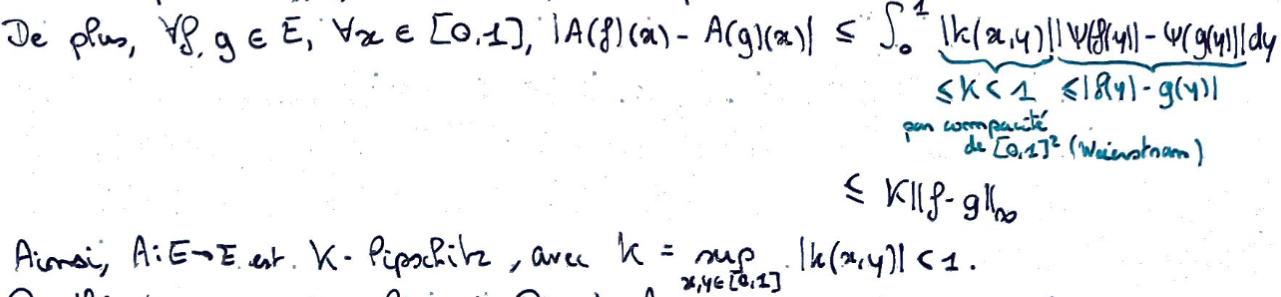 De plus, ∀f, g ∈ E, ∀x ∈ [0,1], |A(f)(x) - A(g)(x)| ≤ ∫₀¹ |k(x,y)||Ψ(f(y)) - Ψ(g(y))|dy
≤ K < 1 ≤ |f(y) - g(y)|
par compacité
de [0,1]² (Weierstrass)
≤ K||f - g||∞
Ainsi, A : E → E est K-lipschitz, avec K = sup |k(x,y)| < 1.
x,y∈[0,1]